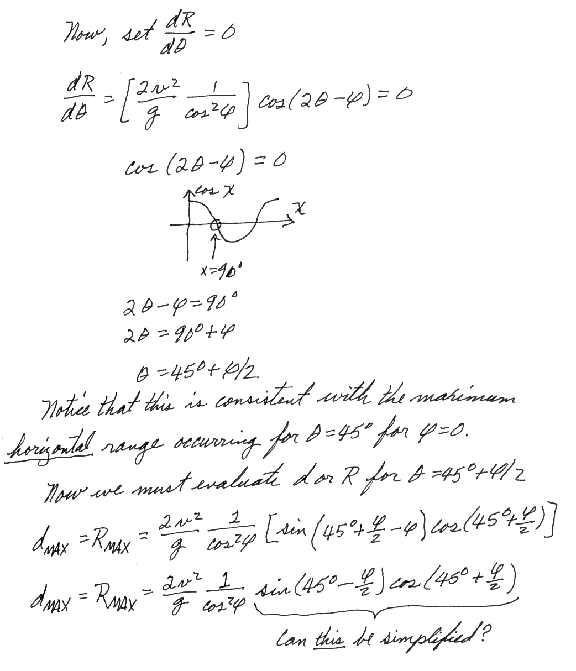 Now, set dR/dθ = 0
dR/dθ = [2v²/g 1/cos²φ] cos(2θ-φ) = 0
cos (2θ-φ) = 0
cos x
x
x=90°
2θ-φ=90°
2θ = 90°+φ
θ = 45°+φ/2
Notice that this is consistent with the maximum
horizontal range occurring for θ=45° for φ=0.
Now we must evaluate d or R for θ=45°+φ/2
dMAX = RMAX = 2v²/g 1/cos²φ [sin(45°+φ/2-φ) cos(45°+φ/2)]
dMAX = RMAX = 2v²/g 1/cos²φ sin(45°-φ/2) cos(45°+φ/2)
Can this be simplified?